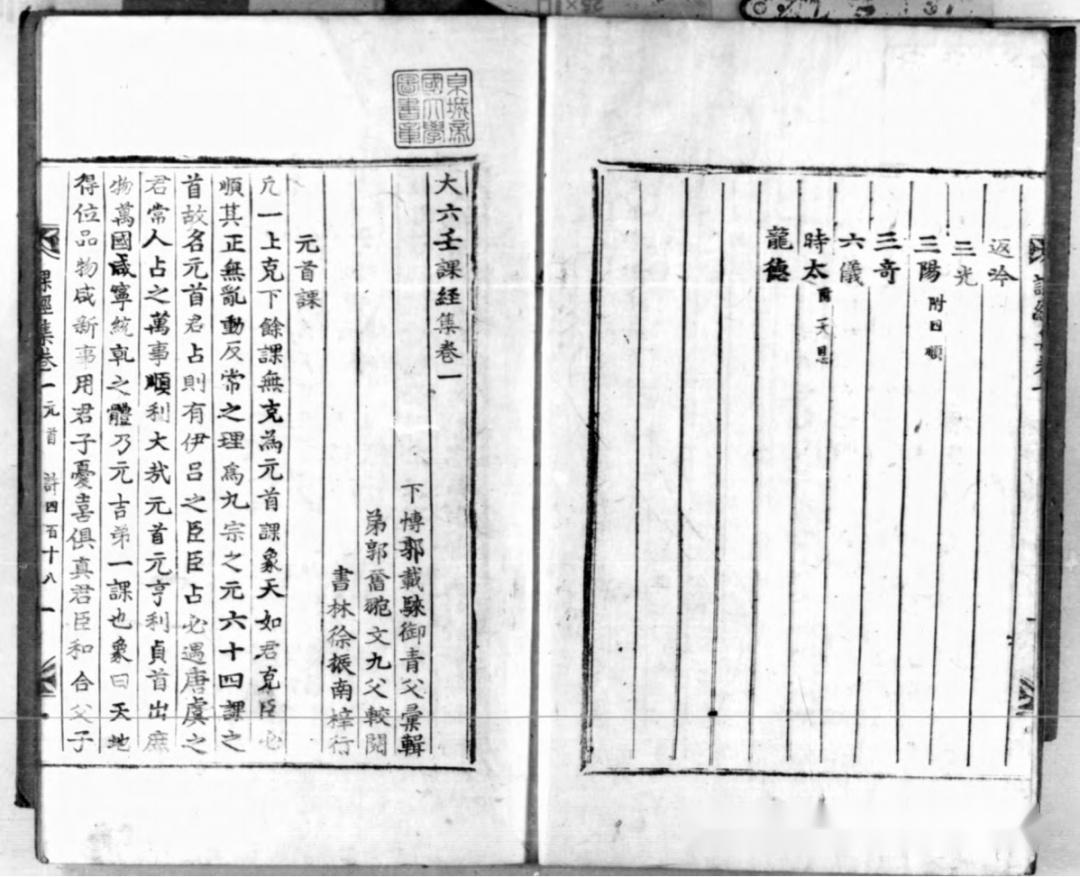 返吟
三光
三陽 附日順
三奇
六儀
時太 附天恩
龍德
京城帝
國大學
圖書章
大六壬課経集卷一
下博郭載騋御青父彙輯
書林徐振南梓行
元首課
凢一上克下餘課無克為元首課象天如君克臣心
順其正無亂動反常之理為九宗之元六十四課之
首故名元首君占則有伊呂之臣臣占必遇唐虞之
君常人占之萬事順利大㢤元首元亨利貞首出庶
物萬國咸寧統乹之體乃元吉弟一課也象曰天地
得位品物咸新事用君子憂喜俱真君臣和合父子
課經集卷一 元首 計四百十八 一